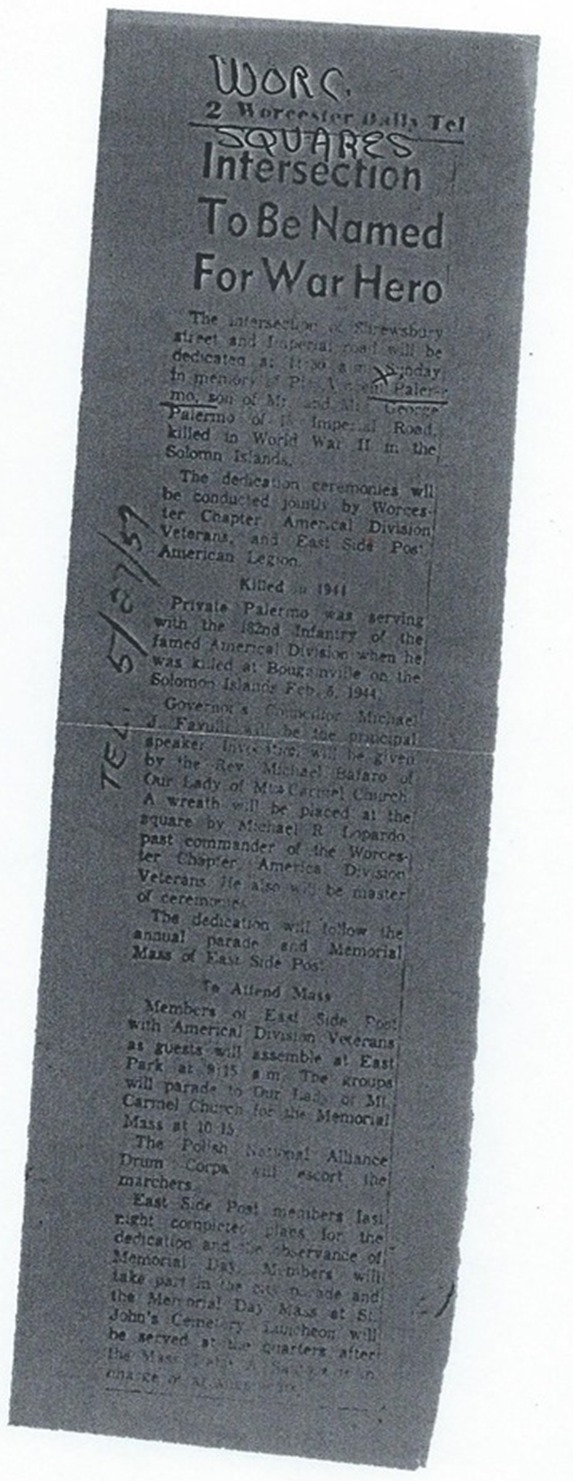 WORC.
2 Worcester Daily Tel
SQUARES
Intersection
To Be Named
For War Hero
The intersection of Shrewsbury
street and Imperial road will be
dedicated at 11:30 a.m. Sunday
in memory of Pfc. Paler-
mo, son of Mr. and Mrs. George
Palermo of Imperial Road,
killed in World War II in the
Solomn Islands.
The dedication ceremonies wll
be conducted jointly by Worces-
ter Chapter, Americal Division
Veterans, and East Side Post
American Legion.
Killed in 1944
Private Palermo was serving
with the 182nd Infantry of the
famed Americal Division when he
was killed at Bougainville on the
Solomon Islands Feb. 1944.
Governor's Councillor Michael
J. Favulli will be the principal
speaker. Invocation will be given
by the Rev. Michael Bafaro of
Our Lady of Mt. Carmel Church.
A wreath will be placed at the
square by Michael R. Lopardo,
past commander of the Worces-
ter Chapter Americal Division
Veterans. He also will be master
of ceremonies.
The dedication will follow the
annual parade and Memorial
Mass of East Side Post.
To Attend Mass
Members of East Side Post
with Americal Division Veterans
as guests will assemble at East
Park at 9:15 a.m. The groups
will parade to Our Lady of Mt.
Carmel Church for the Memorial
Mass at 10:15.
The Polish National Alliance
Drum Corps will escort the
marchers.
East Side Post members last
night completed plans for the
dedication and the observance of
Memorial Day. Members will
take part in the city parade and
the Memorial Day Mass at St.
John's Cemetery. Luncheon will
be served at the quarters after
the Mass. in
charge of
TEL. 5/27/57